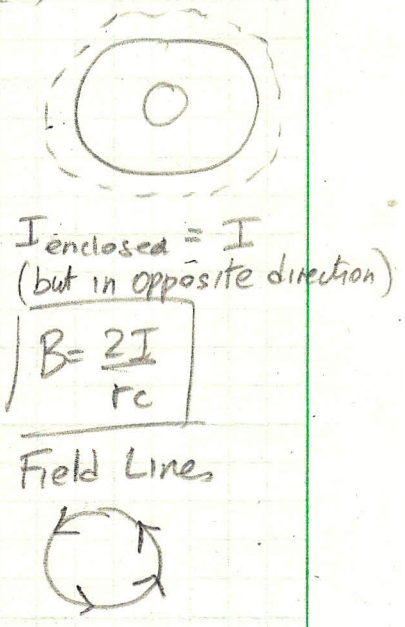 I enclosed = I
(but in opposite direction)
B= 2I
rc
Field Lines